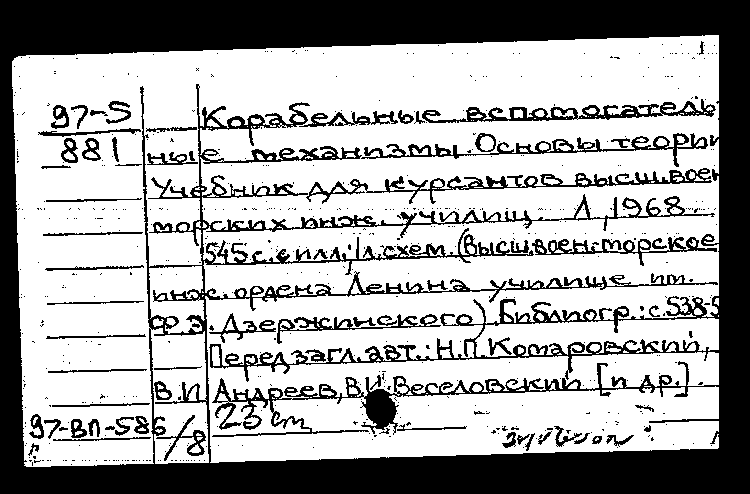 97-5 Корабельные вспомогатель-
881 ные механизмы. Основы теории
Учебник для курсантов высш. воен
морских инж. училищ. Л, 1968.
545 с. с илл.; 1 л. схем. (Высш. воен.-морское
инж. ордена Ленина училище им.
Ф.Э. Дзержинского). Библиогр.: с. 538-5
Перед загл. авт.: Н.П. Комаровский,
В.И. Андреев, В.И. Веселовский [и др.].
97-ВП-586/8 23 см